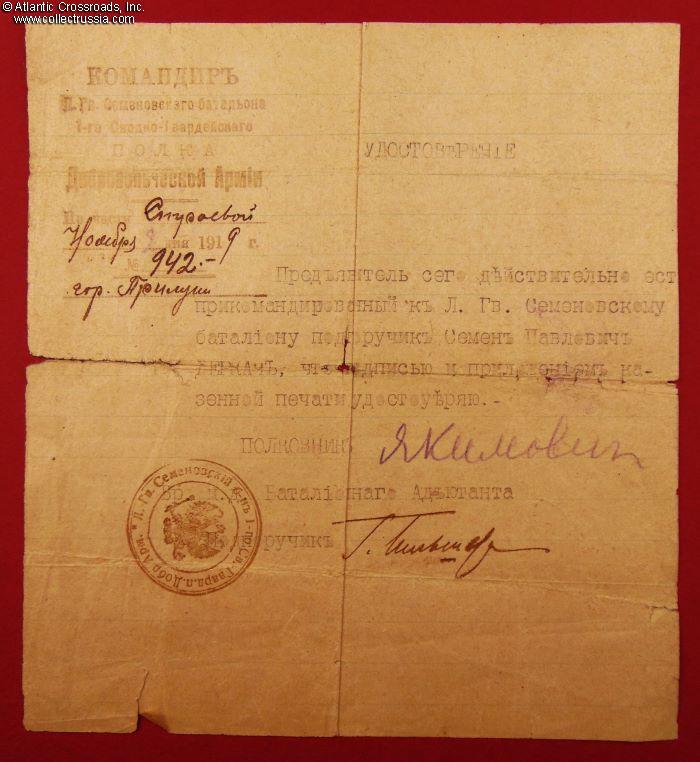 © Atlantic Crossroads, Inc.
www.collectrussia.com
КОМАНДИРЪ
Л. Гв. Семеновскаго батальона
1-го Сводно-Гвардейскаго
ПОЛКА
Добровольческой Арміи
По части Строевой
Ноября 2 дня 1919 г.
№ 942.-
гор. Прилуки
УДОСТОВѢРЕНІЕ
Предъявитель сего дѣйствительно ест
прикомандированный къ Л. Гв. Семеновскому
баталіону подпоручик Семен Павлович
ДЕРКАЧЪ, что подписью и приложеніем ка-
зенной печати удостовѣряю.-
ПОЛКОВНИК Якимович
Вр. и. д. Баталіоннаго Адъютанта
Подпоручик
Л. Гв. Семеновскій б-нъ 1-го Св. Гвард. п. Добр. Арм.